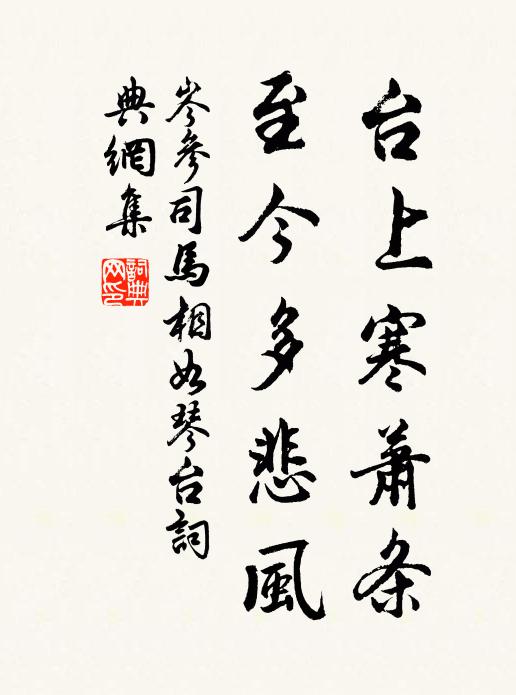 台上寒蕭条
至今多悲風
岑參司馬相如琴台詞
典網集
詞典
网印